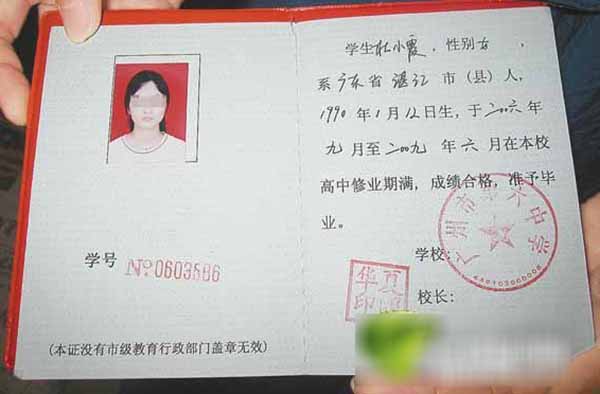 学号 №0603586
(本证没有市级教育行政部门盖章无效)
学生杜小霞, 性别女,
系广东省湛江市(县)人,
1990年1月12日生, 于二00六年
九月至二00九年六月在本校
高中修业期满, 成绩合格, 准予毕
业。
学校:
广州市第六中学
校长:
华夏
印